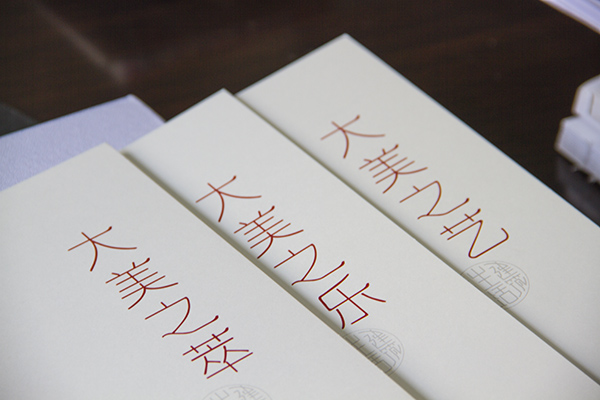 大美之
大美之乐
大美之艺